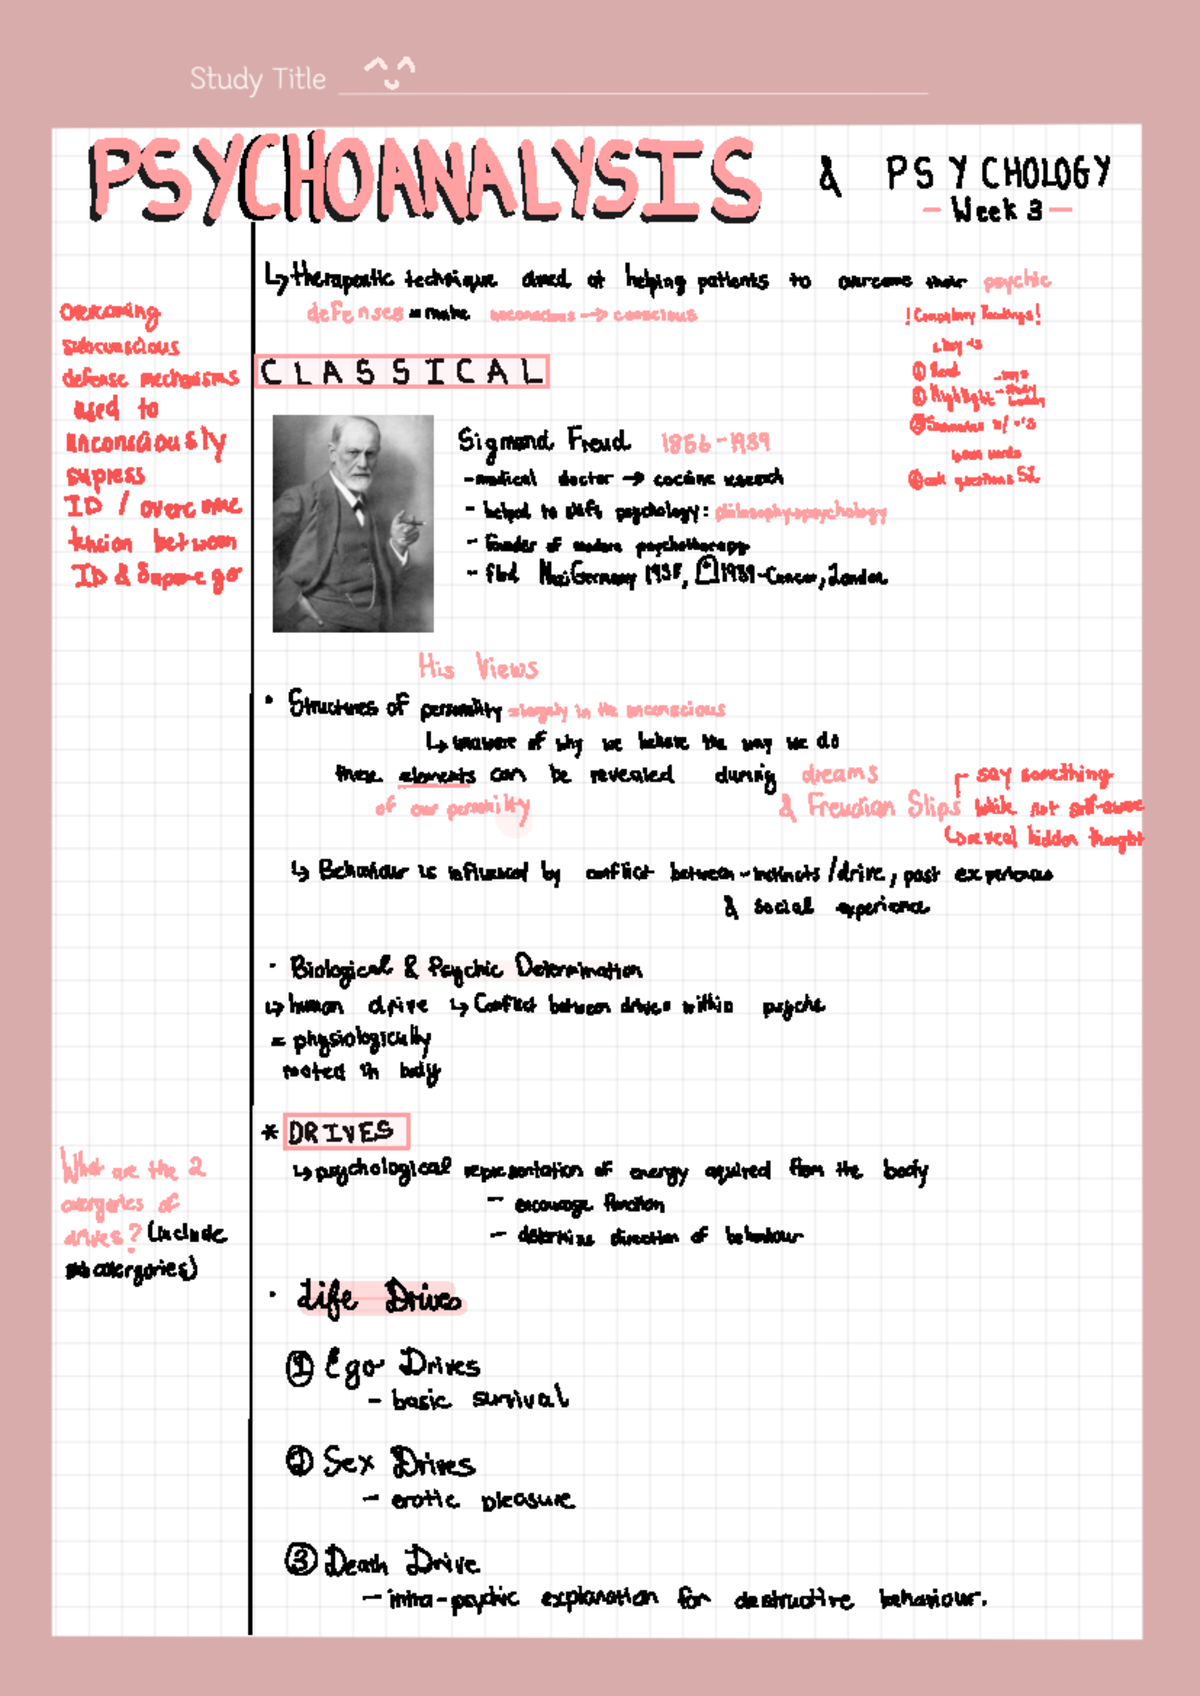 Study Title
PSYCHOANALYSIS & PSYCHOLOGY
- Week 3 -
↳ therapeutic technique aimed at helping patients to overcome their psychic
defenses = make unconscious → conscious
overcoming
subconscious
defense mechanisms
used to
unconsciously
supress
ID / overcome
tension between
ID & Super-ego
! Compulsory Readings!
① Read
② Highlight - study buddy
③ Summarise w/
own words
④ ask questions
CLASSICAL
Sigmund Freud 1856-1939
- medical doctor → cocaine research
- helped to shift psychology: philosophy→psychology
- founder of modern psychotherapy
- fled Nazi Germany 1938, 1939-Cancer, London
His Views
• Structures of personality = largely in the unconscious
↳ unaware of why we behave the way we do
these elements can be revealed during dreams
of our personality & Freudian Slips
say something
while not self-aware
↳ reveal hidden thought
↳ Behaviour is influenced by conflict between - instincts/drive, past experiences
& social experience
· Biological & Psychic Determination
↳ human drive ↳ Conflict between drives within psyche
= physiologically
rooted in body
* DRIVES
↳ psychological representation of energy aquired from the body
- encourage function
- determine direction of behaviour
What are the 2
catergories of
drives? (include
sub catergories)
· Life Drives
① Ego Drives
- basic survival
② Sex Drives
- erotic pleasure
③ Death Drive
- intra-psychic explanation for destructive behaviour.